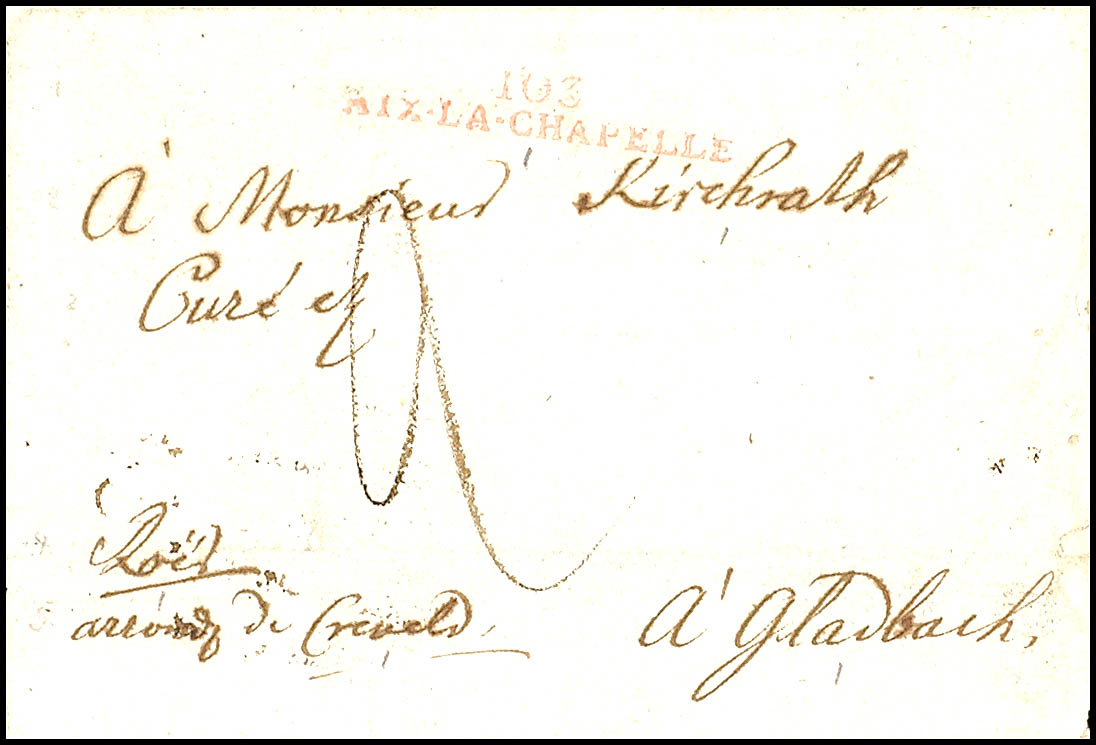 103
AIX·LA·CHAPELLE
À Monsieur Kirchrath
Curé et
Roër
de Creveld,
À Gladbach,